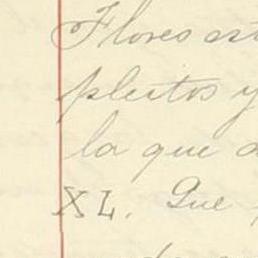 Flores est
pleitos y
la que d
XL. Que